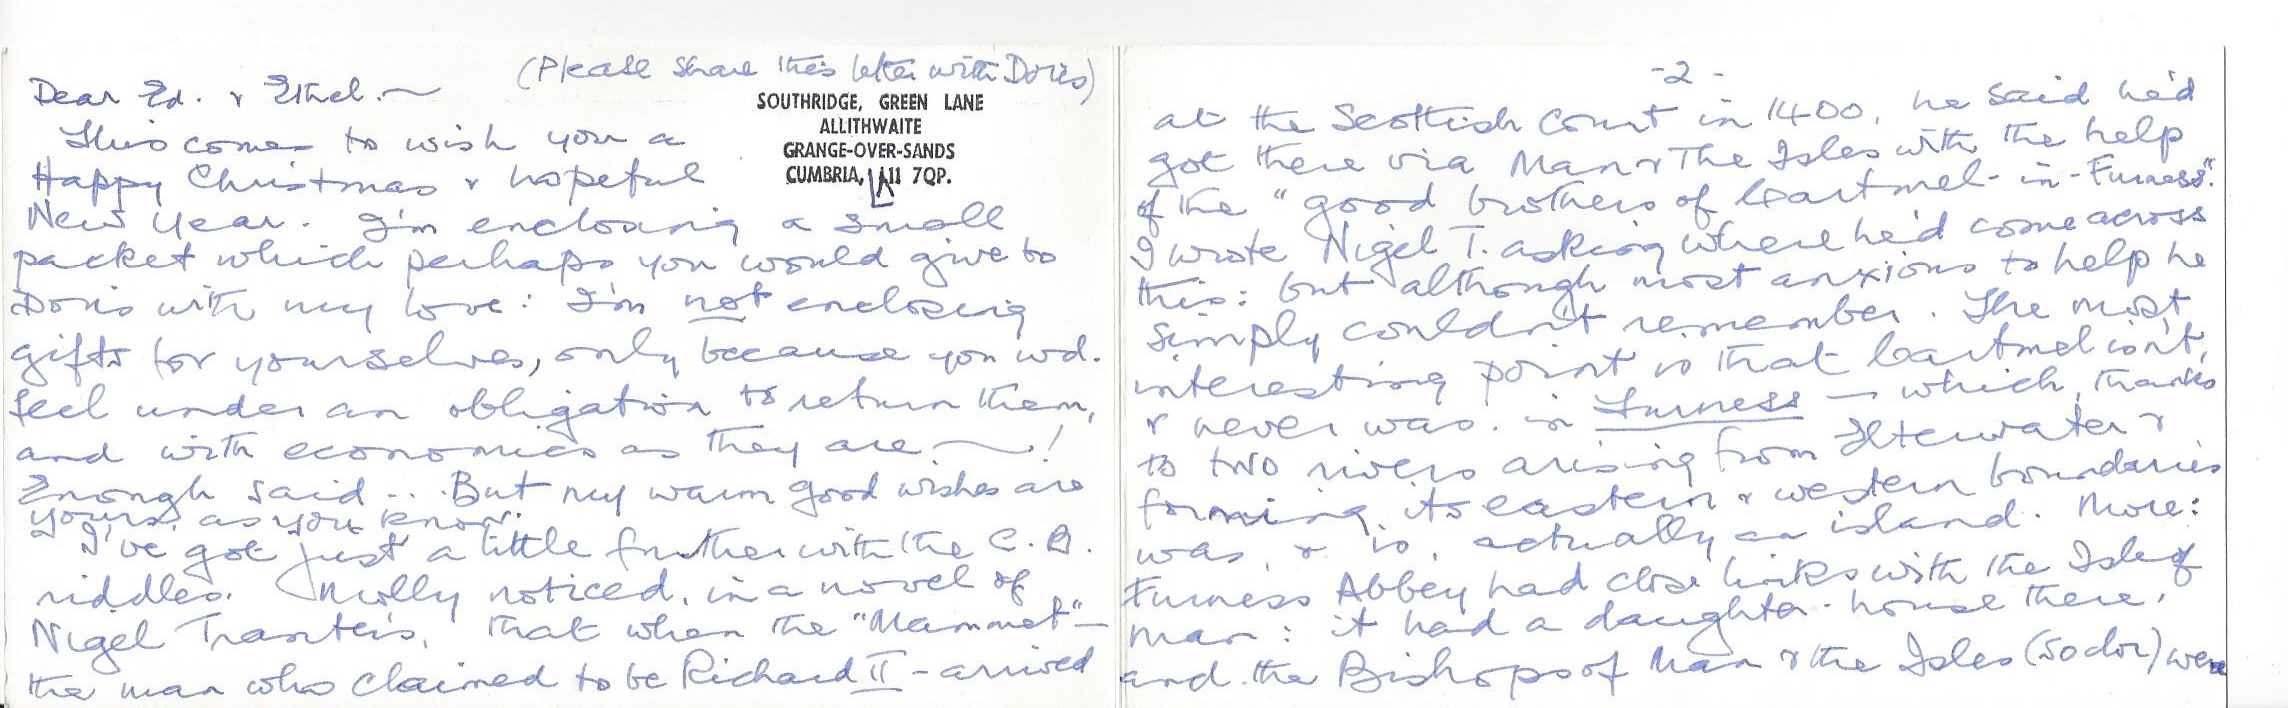 (Please share this letter with Doris)
Dear Ed. & Ethel. ~
SOUTHRIDGE, GREEN LANE
ALLITHWAITE
GRANGE-OVER-SANDS
CUMBRIA, LA11 7QP.
This comes to wish you a
Happy Christmas & hopeful
New Year. I'm enclosing a small
packet which perhaps you would give to
Doris with my love: I'm not enclosing
gifts for yourselves, only because you wd.
feel under an obligation to return them,
and with economics as they are ~ !
Enough said ... But my warm good wishes are
yours, as you know.
I've got just a little further with the C.P.
riddles. Molly noticed, in a novel of
Nigel Tranter's, that when the "Mammet" -
the man who claimed to be Richard II - arrived
- 2 -
at the Scottish Court in 1400, he said he'd
got there via Man & The Isles with the help
of the "good brothers of Cartmel-in-Furness".
I wrote Nigel T. asking where he'd come across
this: but although most anxious to help he
simply couldn't remember. The most
interesting point is that Cartmel isn't,
& never was, in Furness - which, thanks
to two rivers arising from Elterwater &
forming its eastern & western boundaries
was, & is, actually an island. More:
Furness Abbey had close links with the Isle of
Man: it had a daughter-house there,
and the Bishops of Man & the Isles (Sodor) were